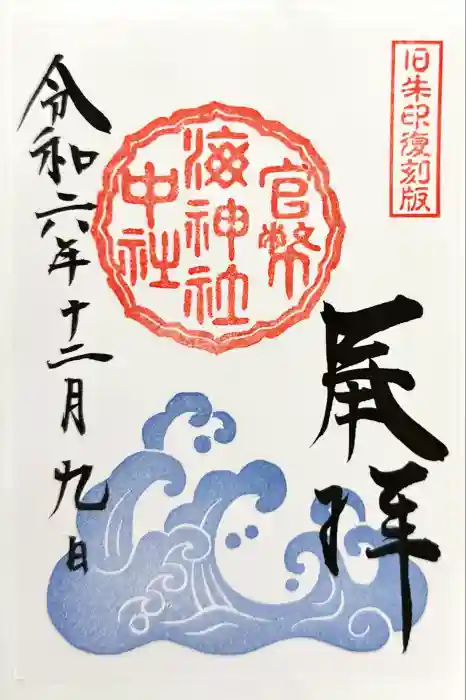 旧朱印復刻版
奉拝
官幣
海神社
中社
令和六年十二月九日